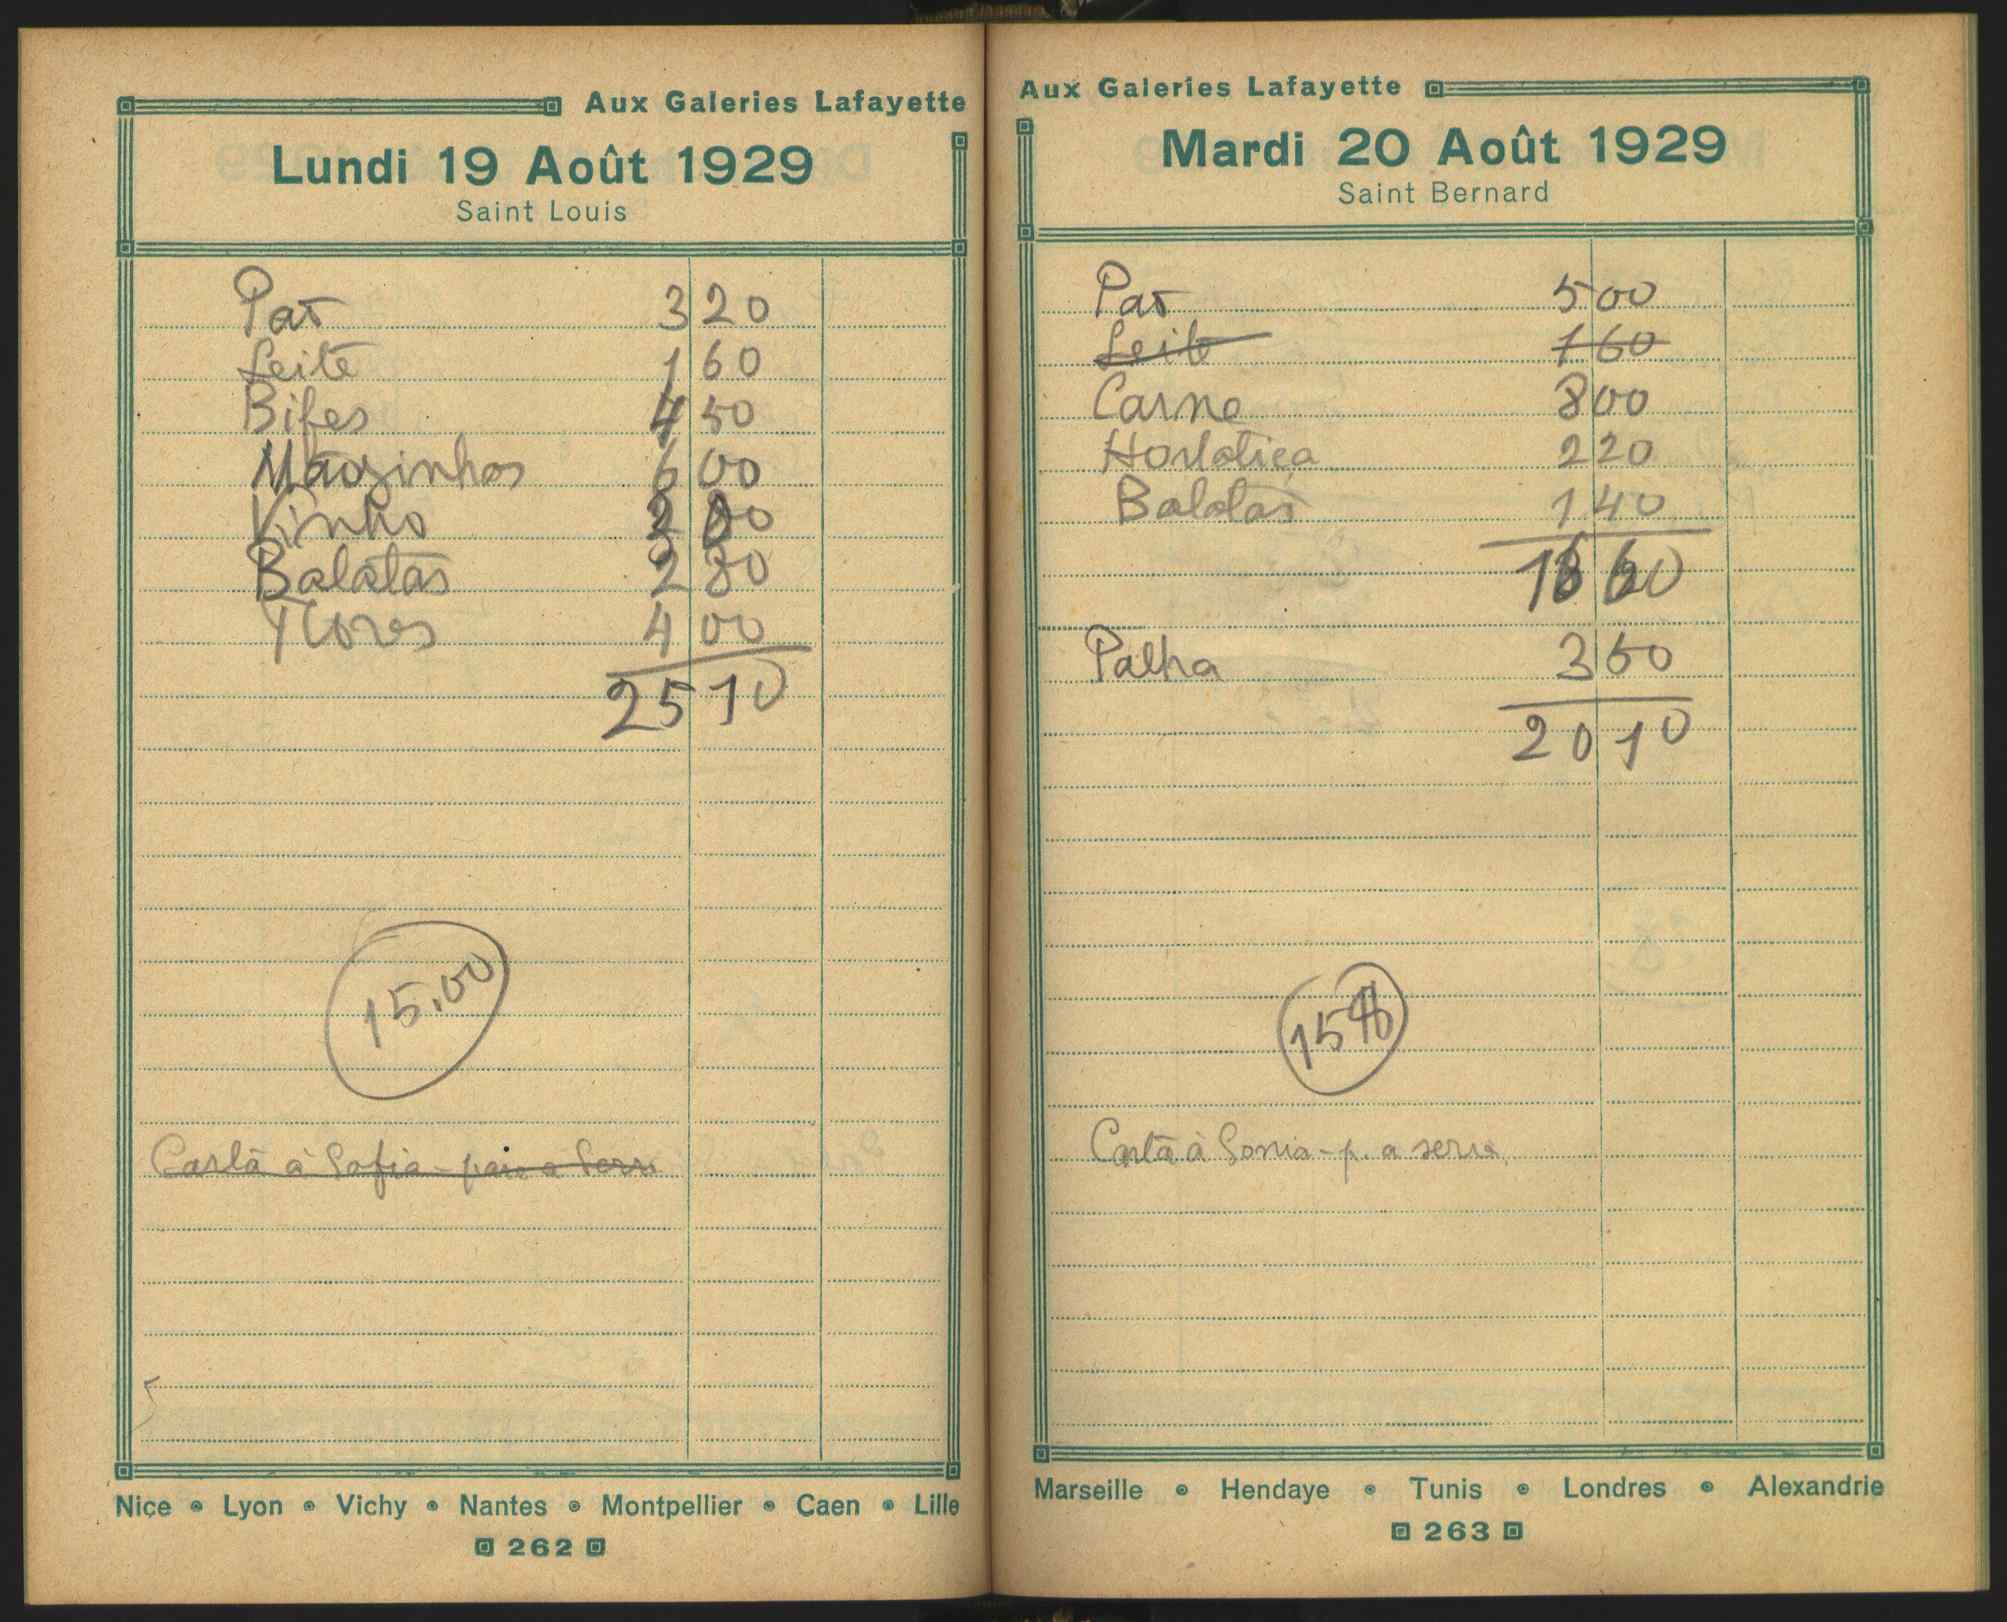 Aux Galeries Lafayette
Lundi 19 Août 1929
Saint Louis
Pão 320
Leite 160
Bifes 450
Mãozinhas 600
Vinho 300
Batatas 280
Flores 400
2510
15.00
Carta à Sofia - para a Serra
5
Nice • Lyon • Vichy • Nantes • Montpellier • Caen • Lille
262
Aux Galeries Lafayette
Mardi 20 Août 1929
Saint Bernard
Pão 500
Leite 160
Carne 800
Hortaliça 220
Batatas 140
1660
Palha 350
2010
15
Carta à Sonia - p. a serra
Marseille • Hendaye • Tunis • Londres • Alexandrie
263